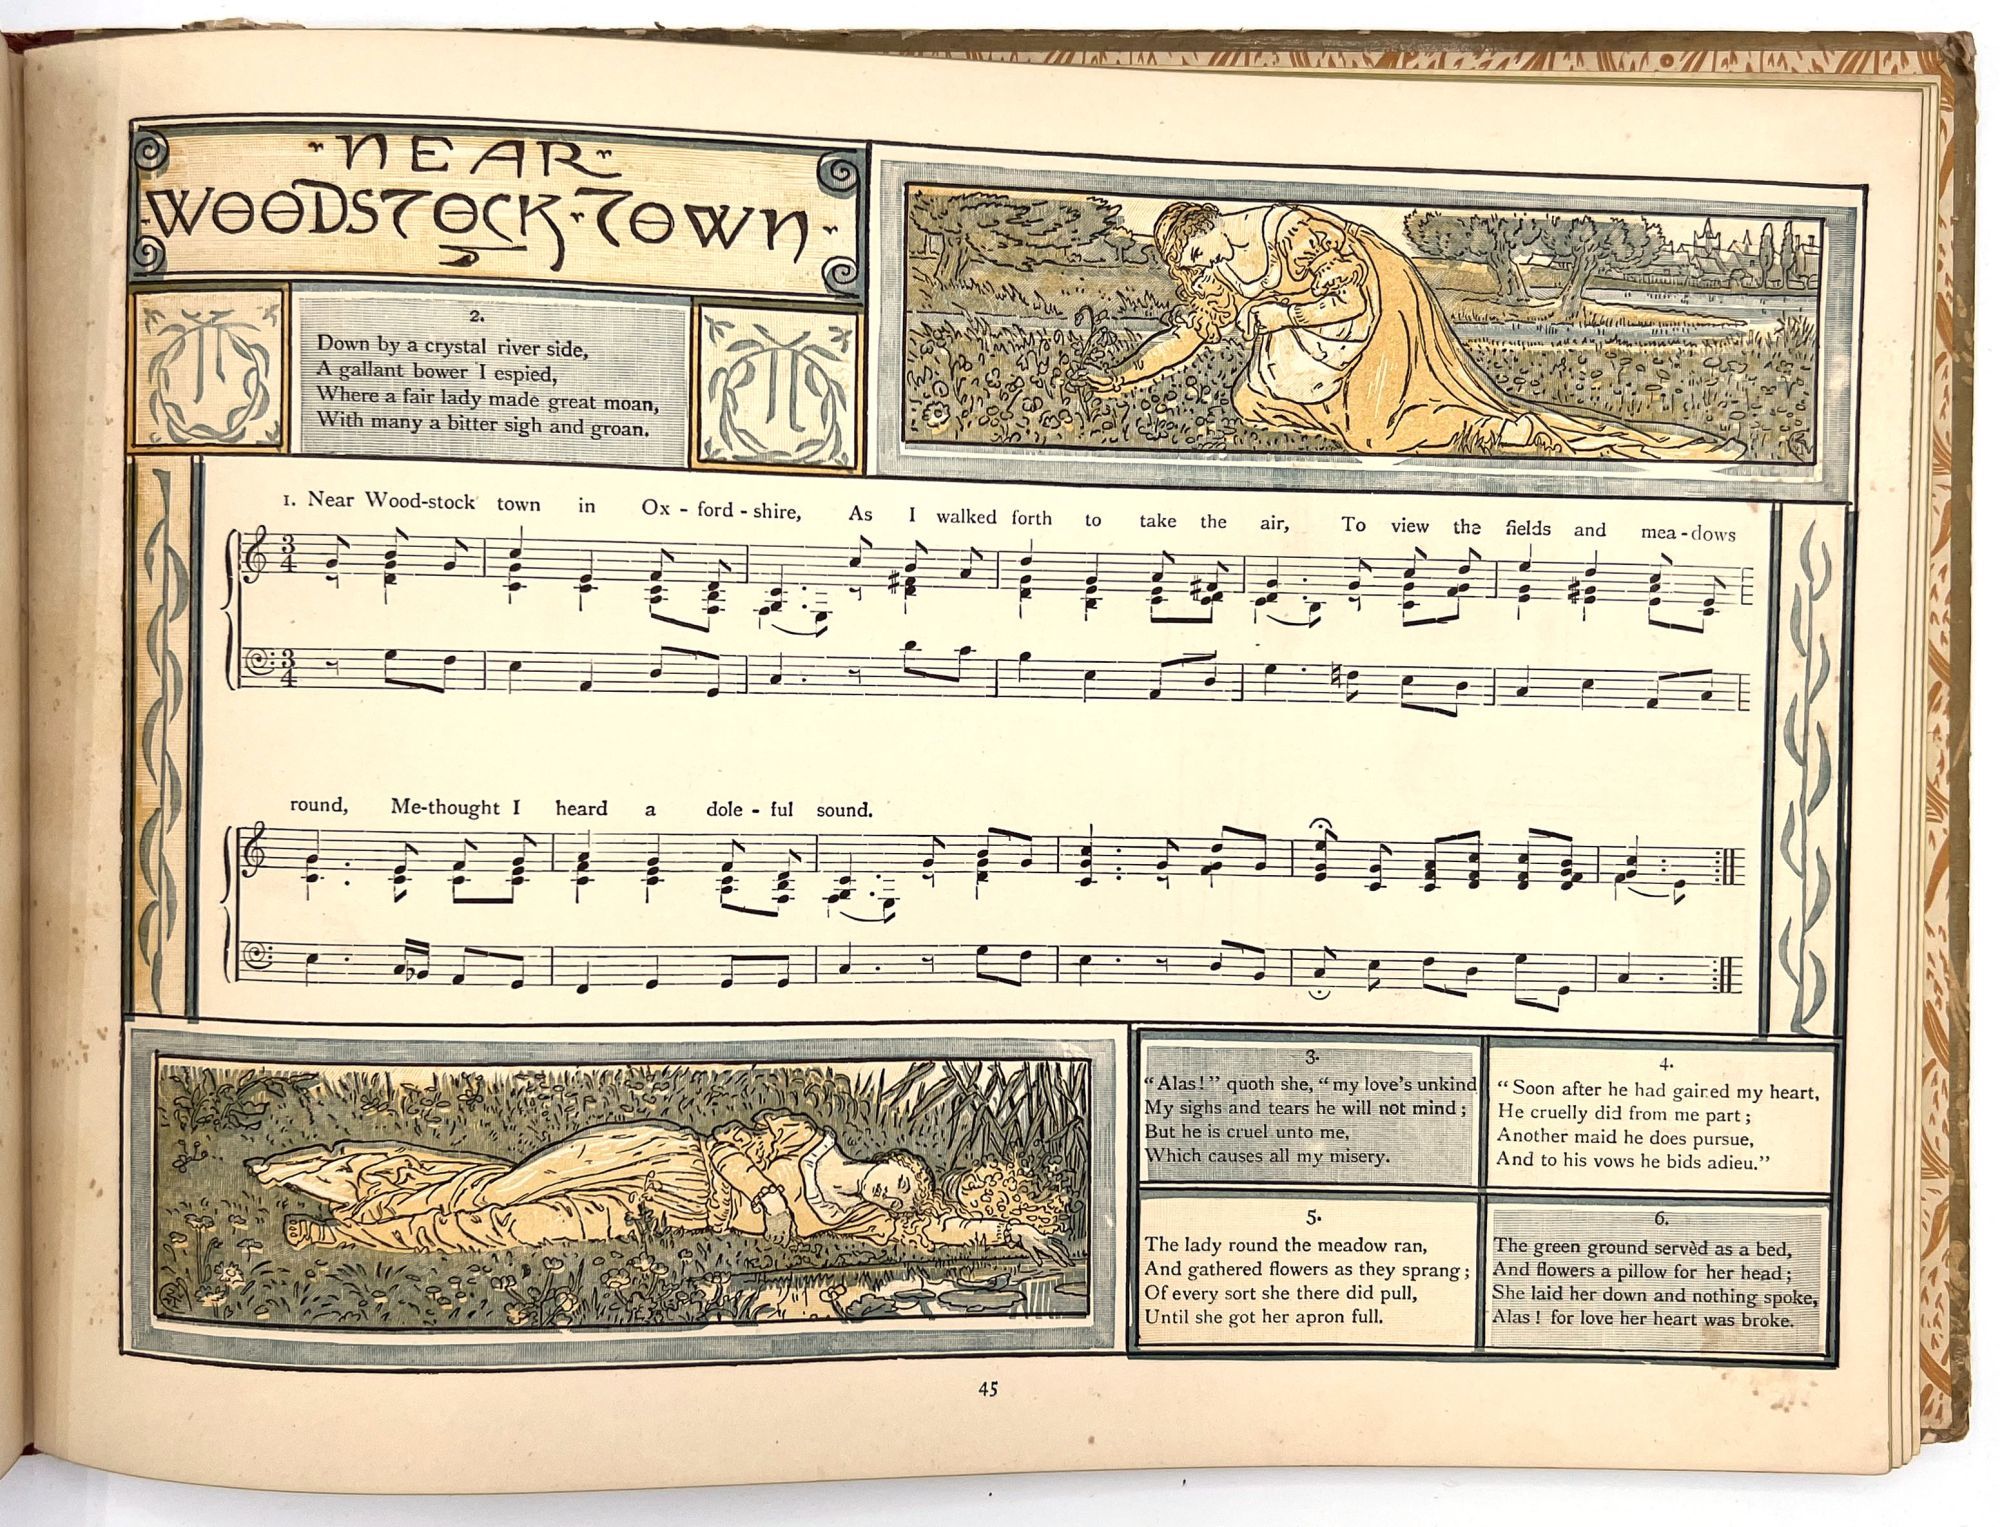 NEAR
WOODSTOCK·TOWN
2.
Down by a crystal river side,
A gallant bower I espied,
Where a fair lady made great moan,
With many a bitter sigh and groan.
1. Near Wood-stock town in Ox - ford - shire, As I walked forth to take the air, To view the fields and mea - dows
round, Me-thought I heard a dole - ful sound.
3.
"Alas!" quoth she, "my love's unkind
My sighs and tears he will not mind;
But he is cruel unto me,
Which causes all my misery.
4.
"Soon after he had gained my heart,
He cruelly did from me part;
Another maid he does pursue,
And to his vows he bids adieu."
5.
The lady round the meadow ran,
And gathered flowers as they sprang;
Of every sort she there did pull,
Until she got her apron full.
6.
The green ground servèd as a bed,
And flowers a pillow for her head;
She laid her down and nothing spoke,
Alas! for love her heart was broke.
45